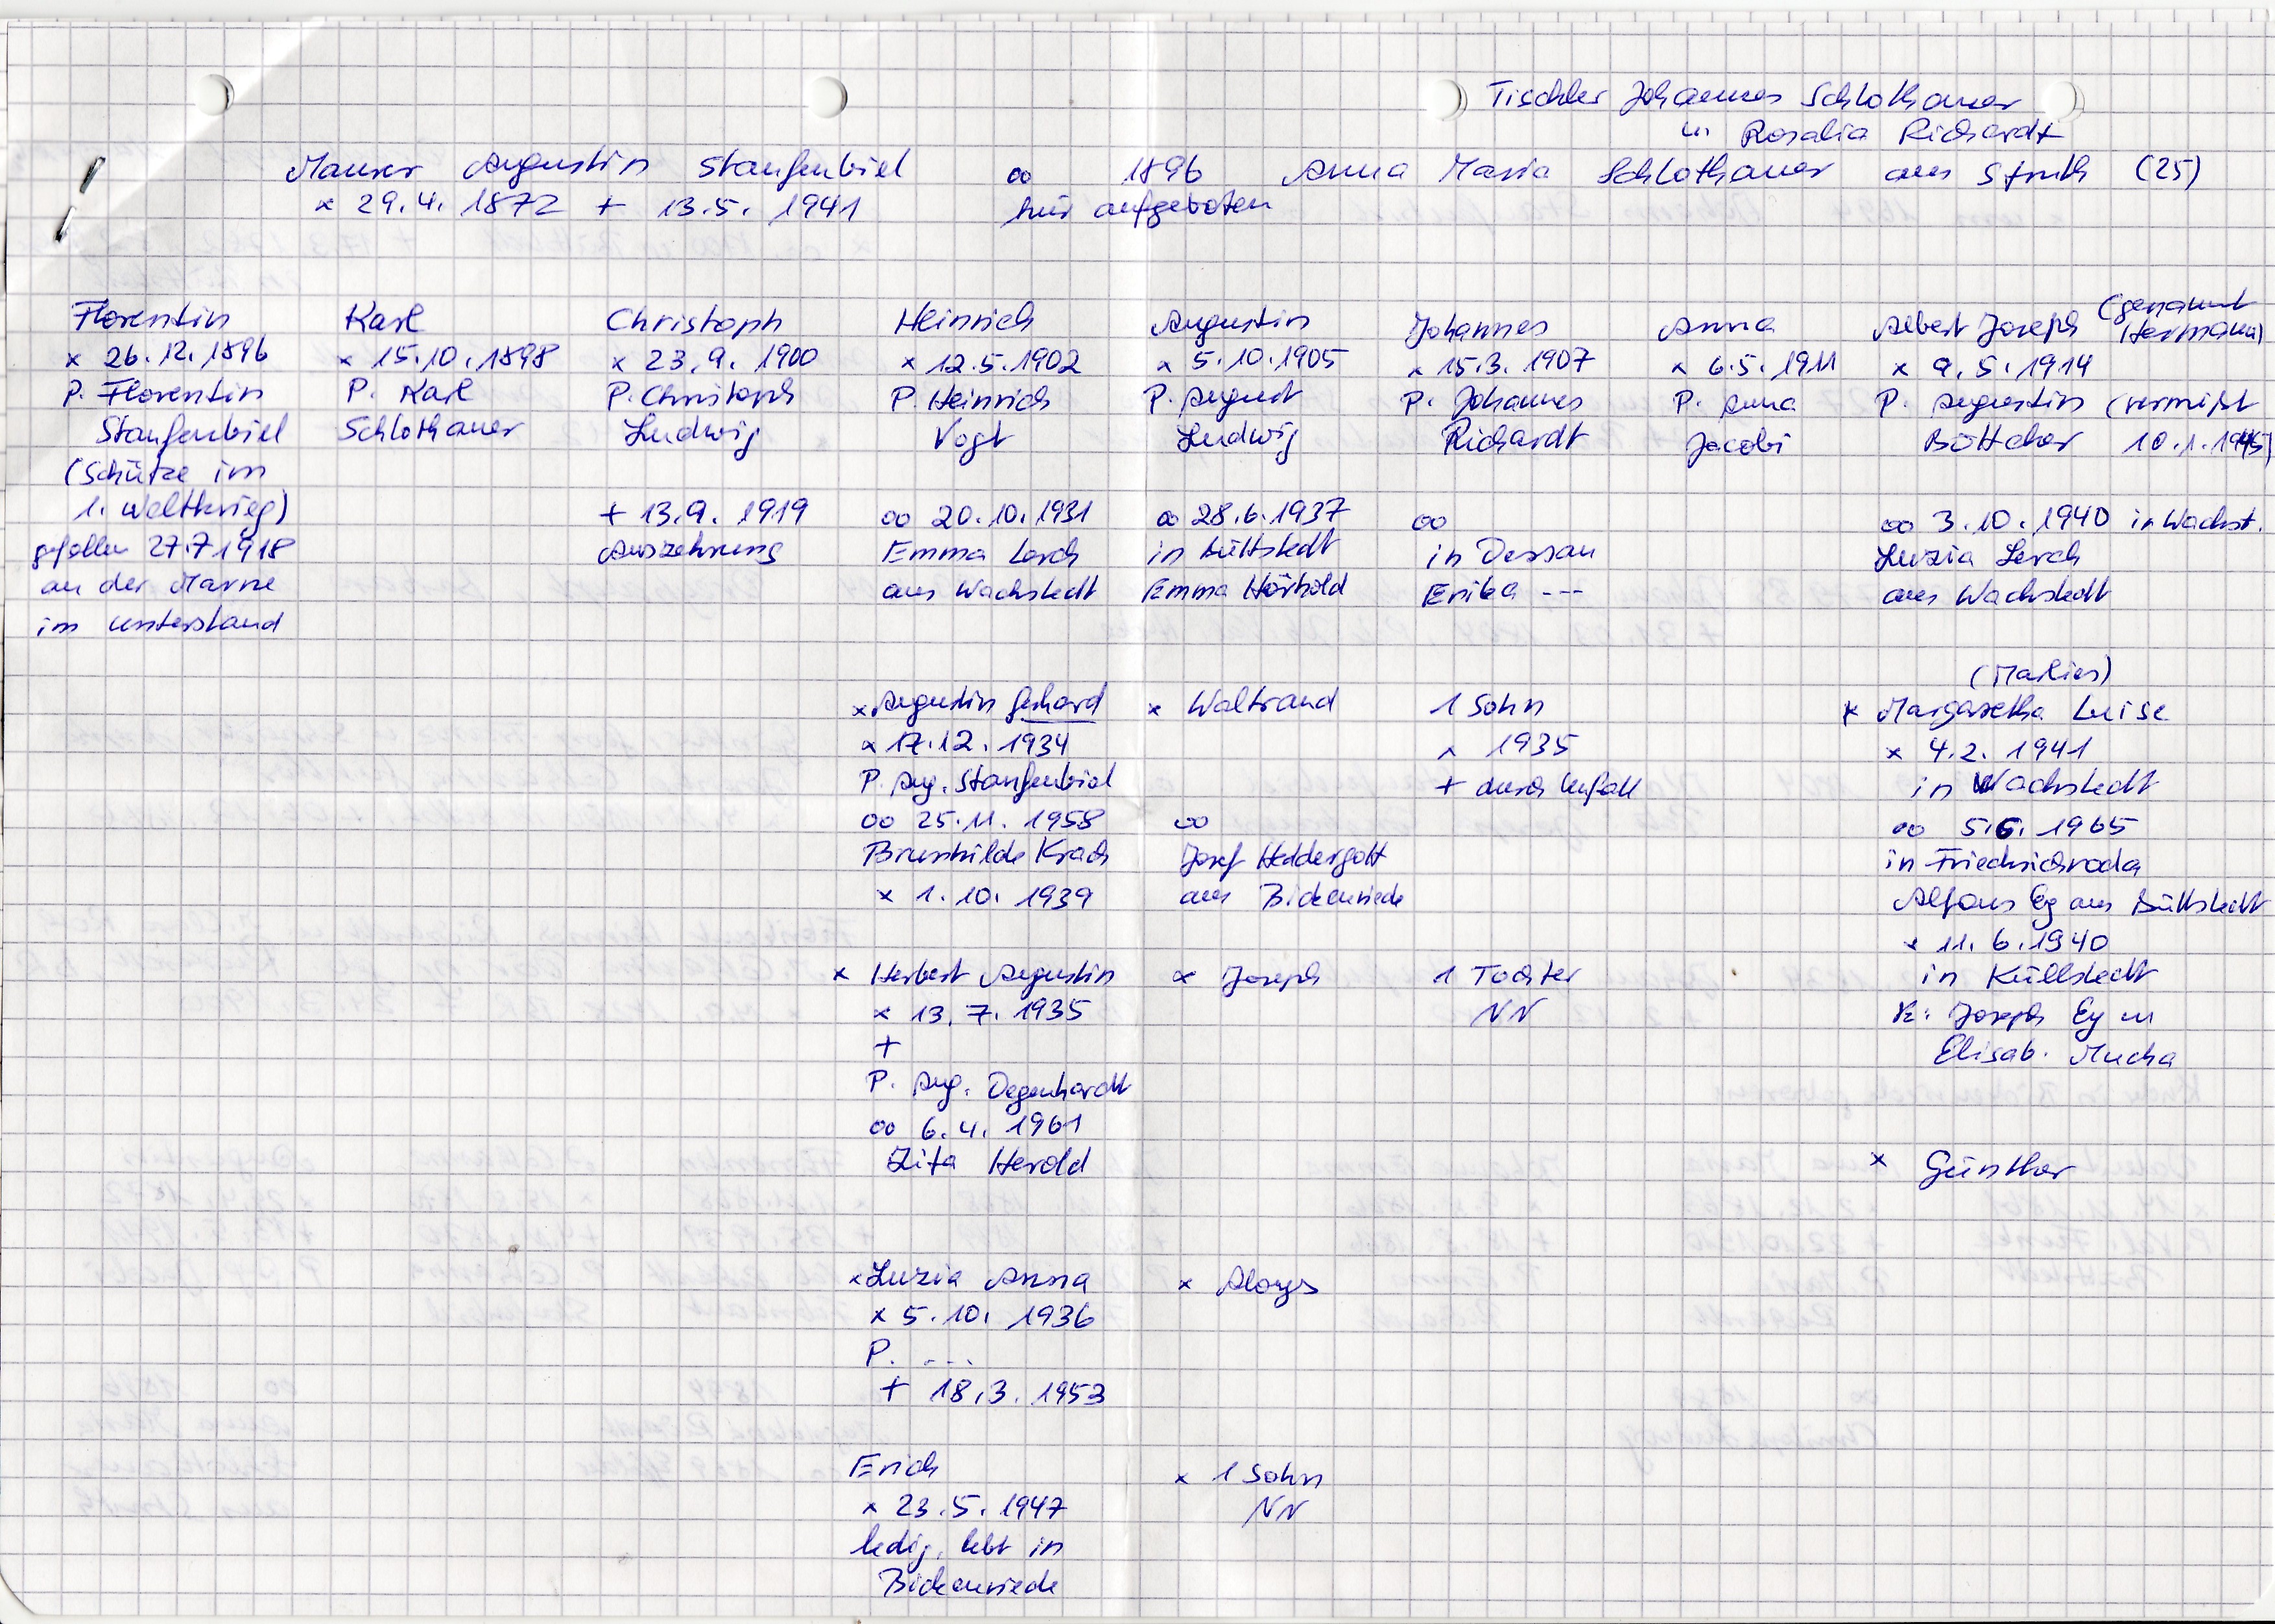 Tischler Johannes Schlothauer
u. Rosalia Richardt
Maurer Augustin Staufenbiel oo 1896 Anna Maria Schlothauer aus Struth (25)
x 29.4. 1872 + 13.5. 1941 hier aufgeboten
Florentin
x 26.12.1896
P. Florentin
Staufenbiel
(Schütze im
1. Weltkrieg)
gefallen 27.7 1918
an der Marne
im Unterstand
Karl
x 15.10.1898
P. Karl
Schlothauer
Christoph
x 23.9. 1900
P. Christoph
Ludwig
+ 13.9. 1919
Auszehrung
Heinrich
x 12.5.1902
P. Heinrich
Vogt
oo 20.10.1931
Emma Lerch
aus Wachstedt
x Augustin Gerhard
x 17.12. 1934
P. Aug. Staufenbiel
oo 25.11. 1958
Brunhilde Krach
x 1.10. 1939
x Herbert Augustin
x 13.7. 1935
+
P. Aug. Degenhardt
oo 6.4. 1961
Zita Herold
x Luzia Anna
x 5.10. 1936
P. ...
+ 18.3. 1953
Erich
x 23.5. 1947
ledig, lebt in
Bickenriede
Augustin
x 5.10.1905
P. August
Ludwig
oo 28.6.1937
in Büttstedt
Emma Hörbold
x Waltraud
oo
Josef Heddergott
aus Bickenriede
x Joseph
x Aloys
x 1 Sohn
NN
Johannes
x 15.3. 1907
P. Johannes
Richardt
oo
in Dessau
Erika ---
1 Sohn
x 1935
+ durch Unfall
1 Tochter
NN
Anna
x 6.5. 1911
P. Anna
Jacobi
Albert Joseph (genannt
Hermann)
x 9.5.1914
P. Augustin (vermißt
Böttcher 10.1.1945)
oo 3.10.1940 in Wachst.
Luzia Lerch
aus Wachstedt
(Marlies)
x Margaretha Luise
x 4.2. 1941
in Wachstedt
oo 5.6. 1965
in Friedrichroda
Alfons Ey aus Büttstedt
x 11.6.1940
in Küllstedt
V: Joseph Ey u
Elisab. Mucha
x Günther